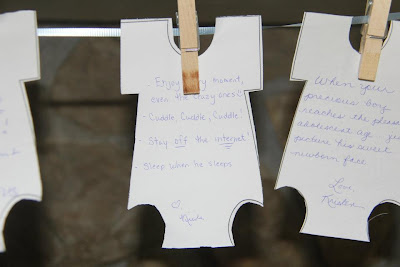 - Enjoy every moment,
even the crazy ones!
- Cuddle, Cuddle, Cuddle!
- Stay off the internet!
- Sleep when he sleeps
When your
precious boy
reaches the
adolescent age
picture his sweet
newborn face
Love,
Kristen